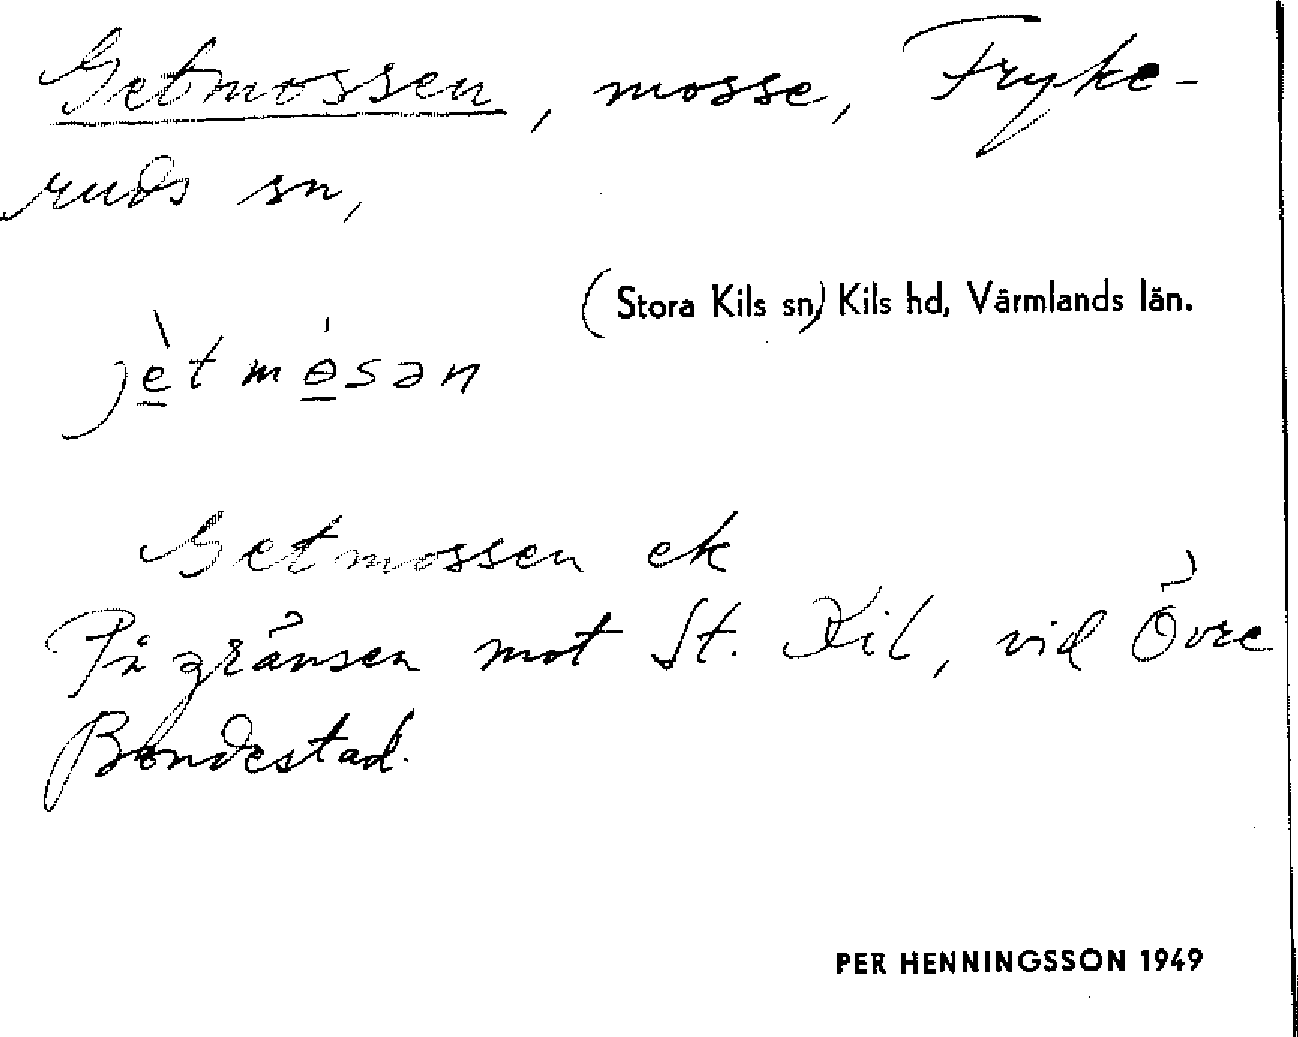 Getmossen, mosse, Fryke-
ruds sn,
(Stora Kils sn) Kils hd, Värmlands län.
jètmósən
Getmossen ek
På gränsen mot St. Kil, vid Övre
Bondestad.
PER HENNINGSSON 1949